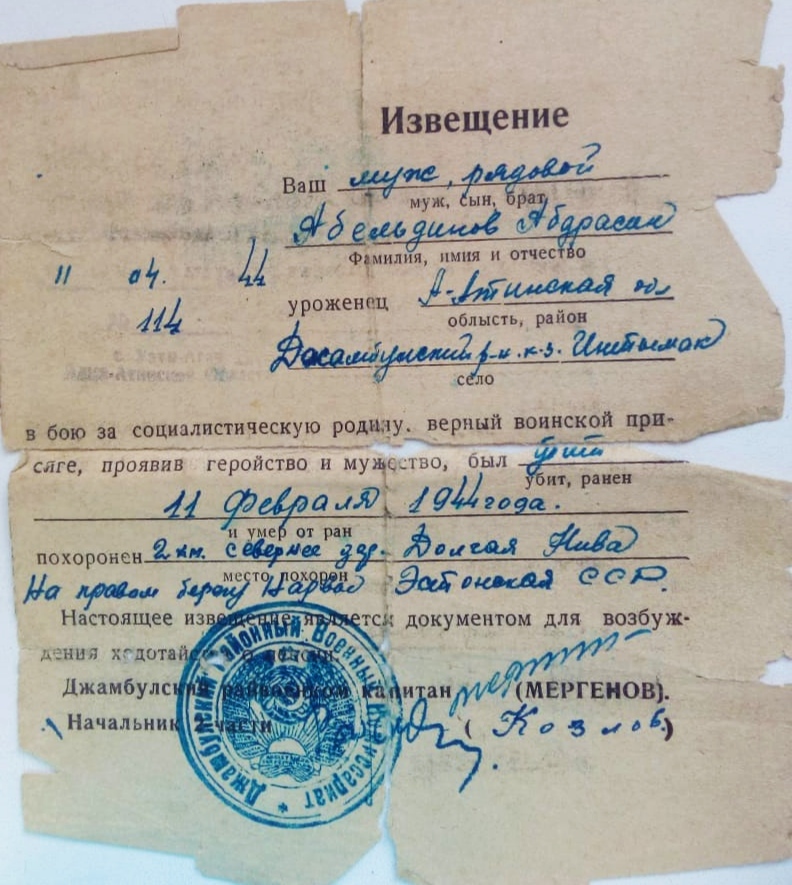 Извещение
Ваш муж, рядовой
муж, сын, брат
Абельдинов Абдрасан
Фамилия, имия и отчество
11 04. 44
уроженец А-Атинская обл
114
облысть, район
Джамбулский р-н. к-з.
село
в бою за социалистическую родину. верный воинской при-
сяге, проявив геройство и мужество, был убит
убит, ранен
11 Февраля 1944 года.
и умер от ран
похоронен 2 км. севернее дер. Долгая Нива
место похорон
На правом берегу Нарвы Эстонская ССР.
Настоящее извещение является документом для возбуж-
дения ходотайс о пенсии
Джамбулский райвоенком капитан (МЕРГЕНОВ).
Начальник части (Козлов)
Джамбулский Районный Военный Комиссариат